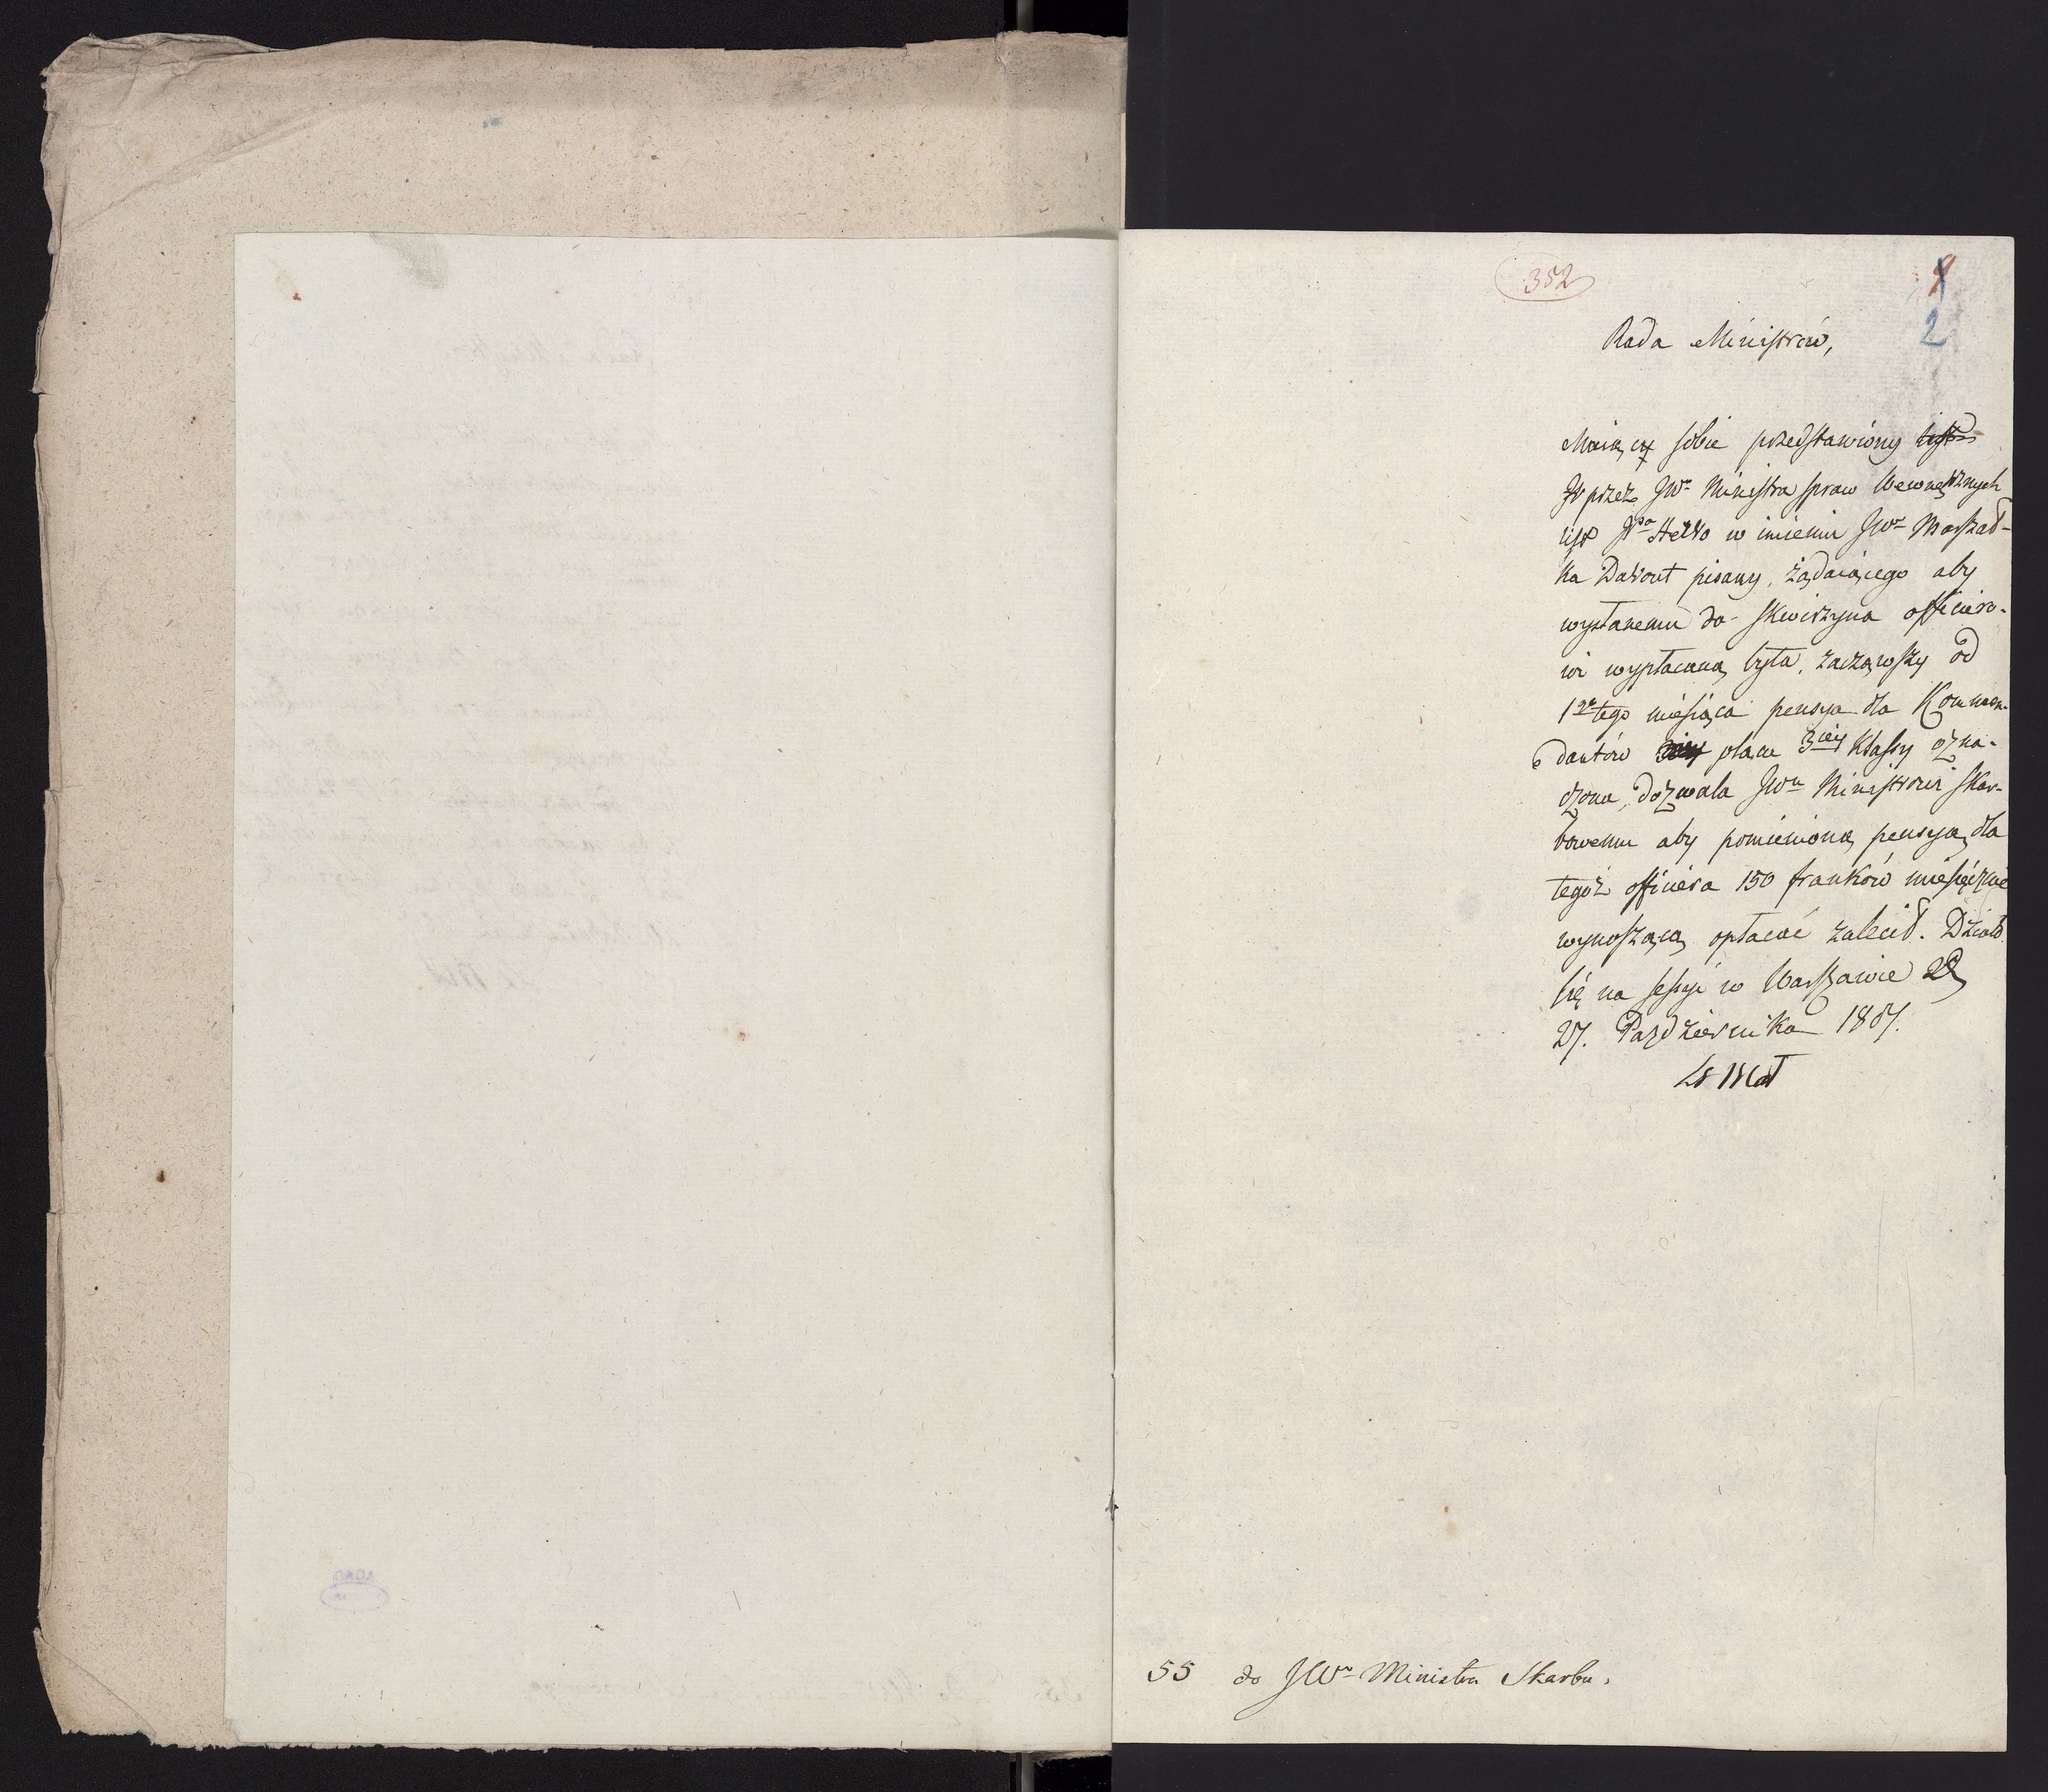 352
2
Rada Ministrów,
Maiąc sobie przedstawiony
przez JWo Ministra spraw Wewnętrznych
list w imieniu JWo Marszał-
ka Davout pisany, żądaiącego aby
wysłanemu do Skwirzyna officiero-
wi wypłacana była, zacząwszy od
1go tego miesiąca pensya dla Kommen-
dantów placu 3ciey Klassy ozna-
czona, dozwala JWu Ministrowi Skar-
bowemu aby pomienioną pensyą dla
tegoż officiera 150 franków miesięcznie
wynoszącą opłacać zalecił. Działo
się na sessyi w Warszawie D
27. Października 1807.
55 do JWo Ministra Skarbu.